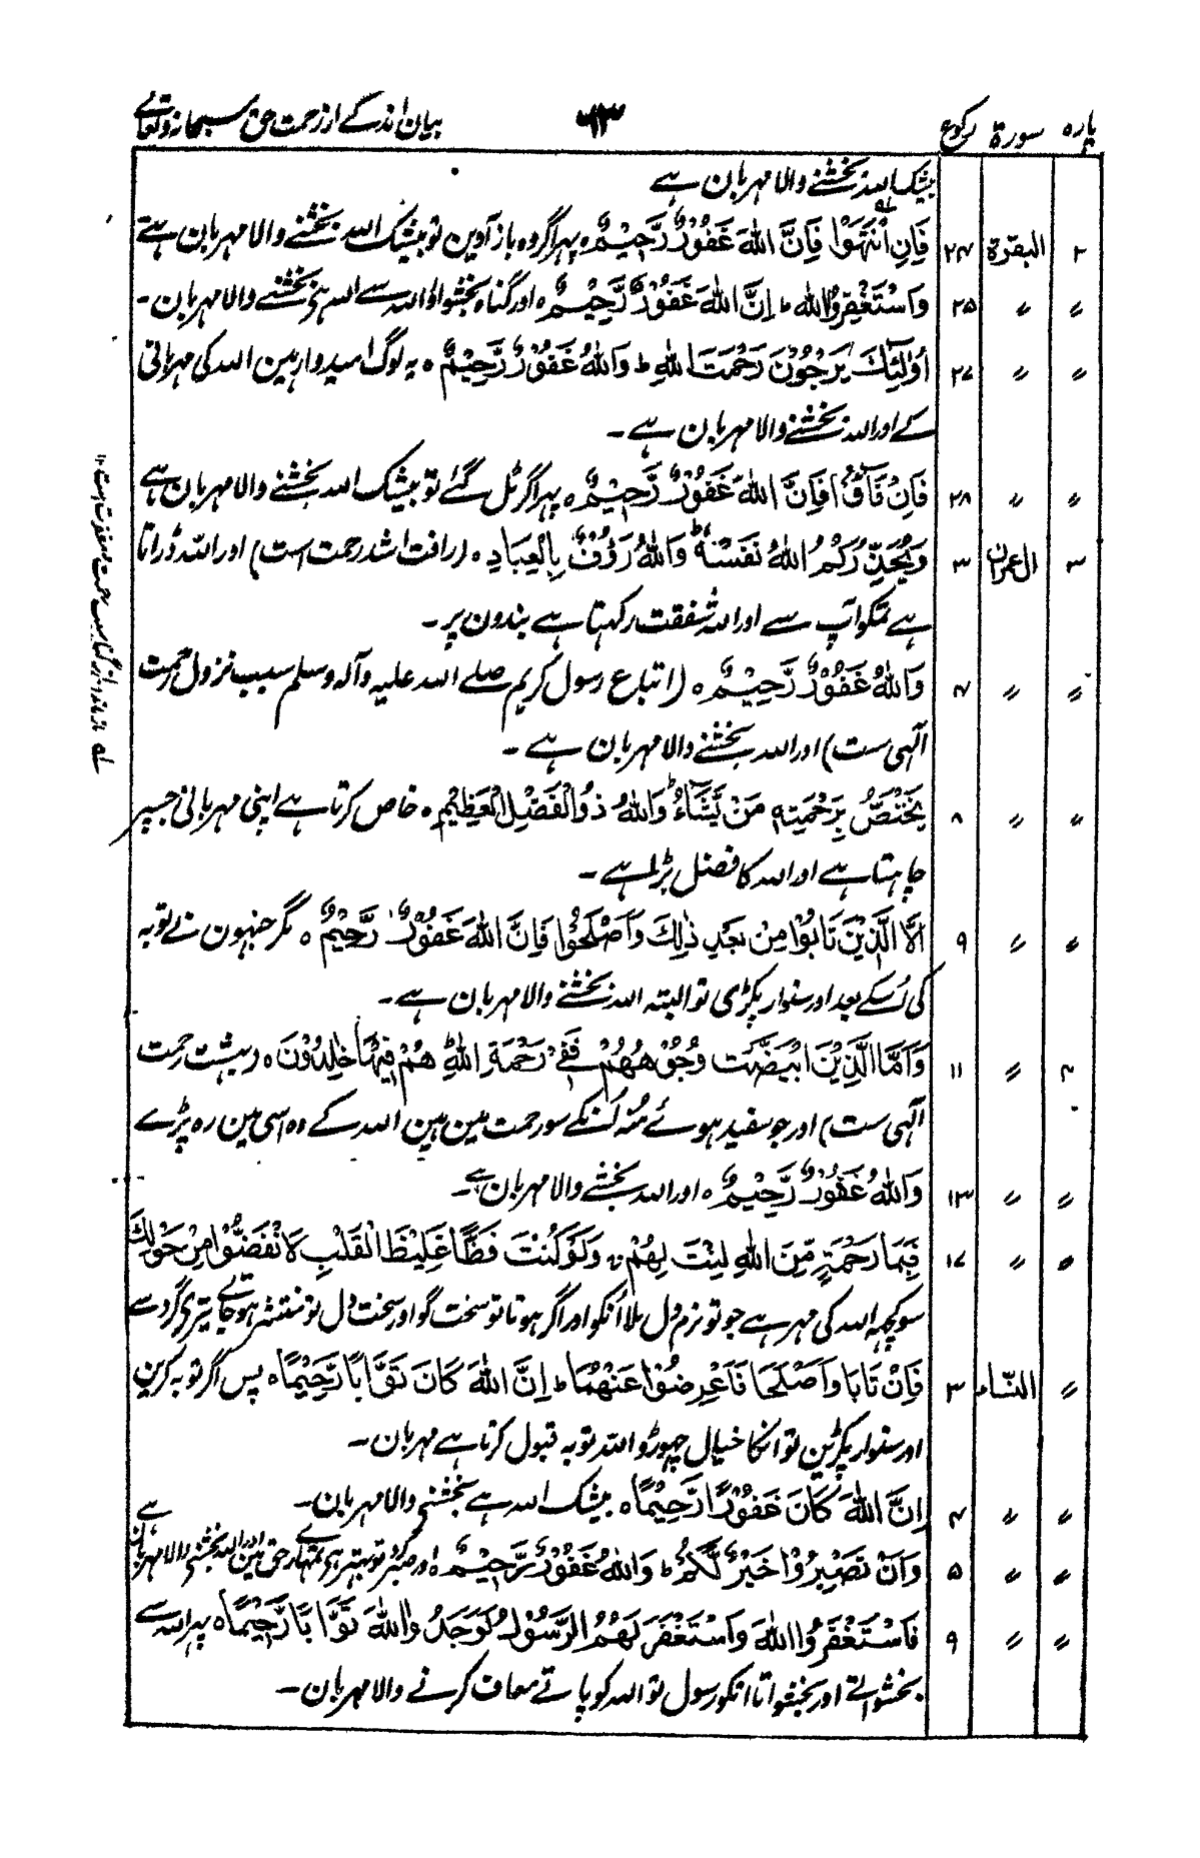 پارہ سورۃ رکوع ۶۳ بیان اندکے از رحمت حق سبحانہ و تعالے
بیشک اللہ بخشنے والا مہربان ہے
۲ البقرۃ ۲۴ فَاِنِ انْتَهَوْا فَاِنَّ اللهَ غَفُوْرٌ رَّحِيْمٌ ہ پہر اگر وہ باز آوین تو بیشک اللہ بخشنے والا مہربان ہے
〃 〃 ۲۵ وَاسْتَغْفِرُوا الله ط اِنَّ اللهَ غَفُوْرٌ رَّحِيْمٌ ہ اور گناہ بخشواؤ اللہ سے اللہ ہی بخشنے والا مہربان۔
〃 〃 ۲۷ اُولٰٓئِكَ يَرْجُوْنَ رَحْمَتَ اللهِ ط وَاللهُ غَفُوْرٌ رَّحِيْمٌ ہ یہ لوگ امیدوار ہین اللہ کی مہربانی
کے اور اللہ بخشنے والا مہربان ہے۔
〃 〃 ۲۸ فَاِنْ فَآءُوْا فَاِنَّ اللهَ غَفُوْرٌ رَّحِيْمٌ ہ پہر اگر مل گئے تو بیشک اللہ بخشنے والا مہربان ہے
۳ اٰل عمران ۳ وَيُحَذِّرُكُمُ اللهُ نَفْسَهٗ ط وَاللهُ رَؤُفٌ بِالْعِبَادِ ہ (رافت اشد رحمت است) اور اللہ ڈراتا
ہے تمکو آپ سے اور اللہ شفقت رکہتا ہے بندون پر۔
〃 〃 ۴ وَاللهُ غَفُوْرٌ رَّحِيْمٌ ہ (اتباع رسول کریم صلے اللہ علیہ وآلہ وسلم سبب نزول رحمت
الٰہی ست) اور اللہ بخشنے والا مہربان ہے۔
〃 〃 ۸ يَخْتَصُّ بِرَحْمَتِهٖ مَنْ يَّشَآءُ ط وَاللهُ ذُو الْفَضْلِ الْعَظِيْمِ ہ خاص کرتا ہے اپنی مہربانی جسپر
چاہتا ہے اور اللہ کا فضل بڑا ہے۔
〃 〃 ۹ اِلَّا الَّذِيْنَ تَابُوْا مِنْ بَعْدِ ذٰلِكَ وَاَصْلَحُوْا فَاِنَّ اللهَ غَفُوْرٌ رَّحِيْمٌ ہ مگر جنہون نے توبہ
کی اُسکے بعد اور سنوار پکڑی تو البتہ اللہ بخشنے والا مہربان ہے۔
۴ 〃 ۱۱ وَاَمَّا الَّذِيْنَ ابْيَضَّتْ وُجُوْهُهُمْ فَفِيْ رَحْمَةِ اللهِ ط هُمْ فِيْهَا خٰلِدُوْنَ ہ (بہشت رحمت
الٰہی ست) اور جو سفید ہوئے مُنہ اُنکے سو رحمت مین ہین اللہ کے وہ اسی مین رہ پڑے
〃 〃 ۱۳ وَاللهُ غَفُوْرٌ رَّحِيْمٌ ہ اور اللہ بخشنے والا مہربان ہے۔
〃 〃 ۱۷ فَبِمَا رَحْمَةٍ مِّنَ اللهِ لِنْتَ لَهُمْ ج وَلَوْ كُنْتَ فَظًّا غَلِيْظَ الْقَلْبِ لَانْفَضُّوْا مِنْ حَوْلِكَ
سو کچہہ اللہ کی مہر ہے جو تو نرم دل ملا اُنکو اور اگر ہوتا تو سخت گو اور سخت دل تو منتشر ہو جاتے تیری گرد سے
〃 النّساء ۳ فَاِنْ تَابَا وَاَصْلَحَا فَاَعْرِضُوْا عَنْهُمَا ط اِنَّ اللهَ كَانَ تَوَّابًا رَّحِيْمًا ہ پس اگر توبہ کرین
اور سنوار پکڑین تو انکا خیال چہوڑو اللہ توبہ قبول کرتا ہے مہربان۔
〃 〃 ۴ اِنَّ اللهَ كَانَ غَفُوْرًا رَّحِيْمًا ہ بیشک اللہ ہے بخشنے والا مہربان۔
〃 〃 ۵ وَاَنْ تَصْبِرُوْا خَيْرٌ لَّكُمْ ط وَاللهُ غَفُوْرٌ رَّحِيْمٌ ہ اور صبر کرو تو بہتر ہے تمہارے حق مین اور اللہ بخشنے والا مہربان ہے
〃 〃 ۹ فَاسْتَغْفَرُوا اللهَ وَاسْتَغْفَرَ لَهُمُ الرَّسُوْلُ لَوَجَدُوا اللهَ تَوَّابًا رَّحِيْمًا ہ پہر اللہ سے
بخشواتے اور بخشواتا انکو رسول تو اللہ کو پاتے معاف کرنے والا مہربان۔